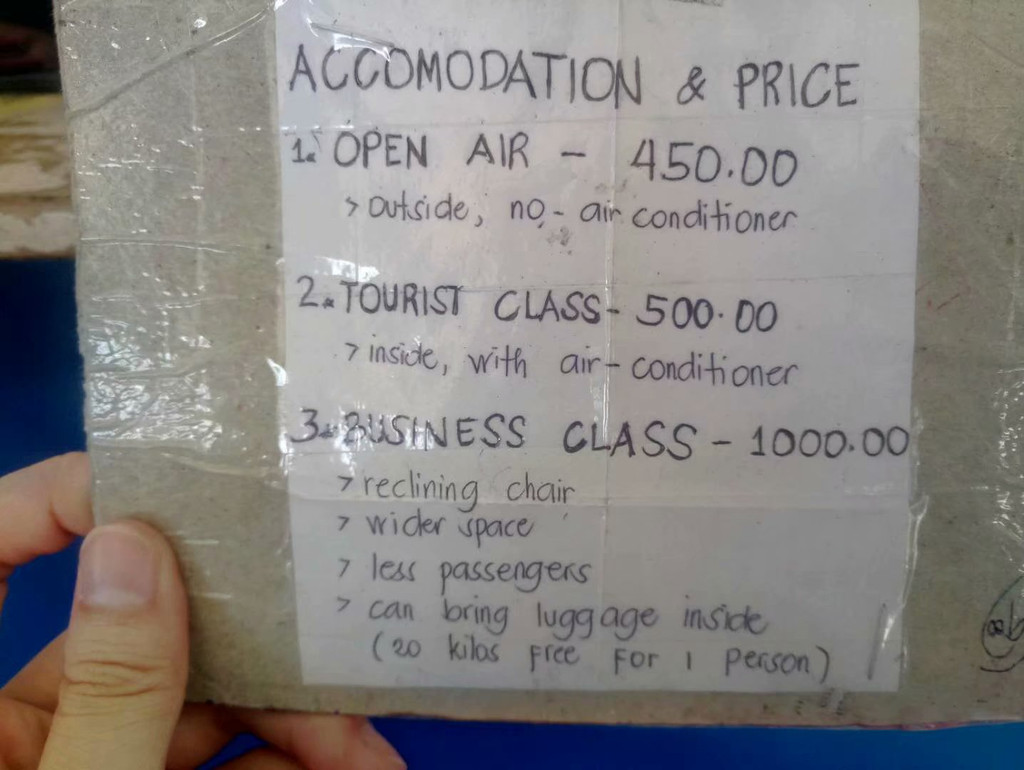 ACCOMODATION & PRICE
1. OPEN AIR - 450.00
> outside, no - air conditioner
2. TOURIST CLASS - 500.00
> inside, with air-conditioner
3. BUSINESS CLASS - 1000.00
> reclining chair
> wider space
> less passengers
> can bring luggage inside
(20 kilos free for 1 person)